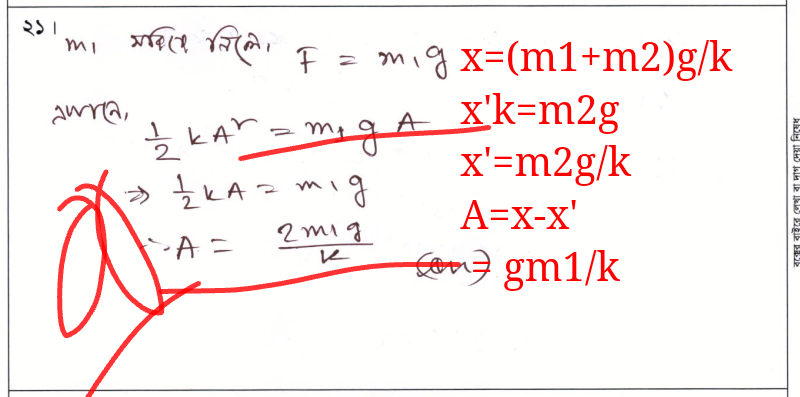 ২১।
m₁ সরিয়ে নিলে, F = m₁g
এখানে,
½ kA² = m₁ g A
⇒ ½ kA = m₁g
∴ A = 2m₁g / k
(Ans)
x=(m1+m2)g/k
x'k=m2g
x'=m2g/k
A=x-x'
= gm1/k
বক্সের বাইরে লেখা বা দাগ দেয়া নিষেধ